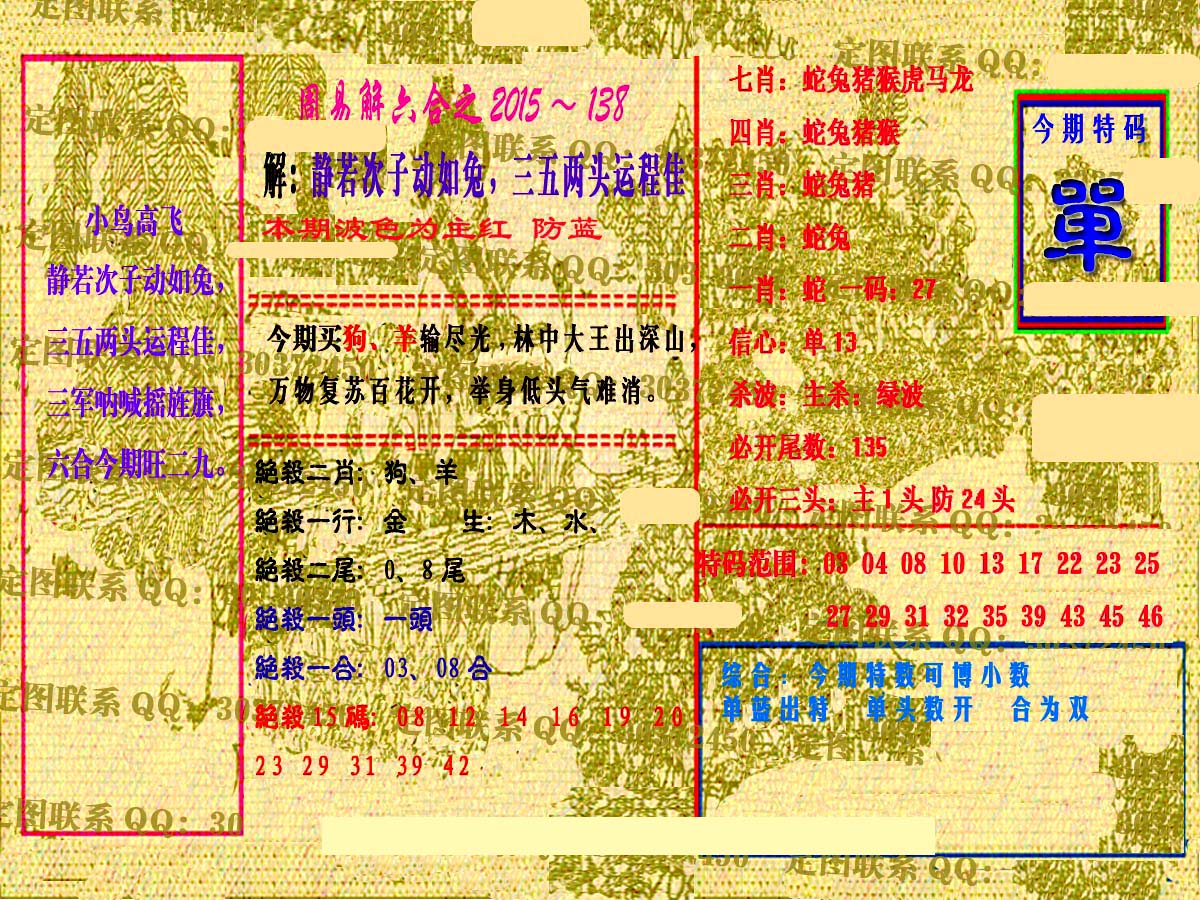 小鸟高飞
静若次子动如兔，
三五两头运程佳，
三军呐喊摇旌旗，
六合今期旺二九。
周易解六合之2015～138
解：静若次子动如兔，三五两头运程佳
本期波色为主红 防蓝
今期买狗、羊输尽光，林中大王出深山，
万物复苏百花开，举身低头气难消。
絕殺二肖：狗、羊
絕殺一行：金 生：木、水、
絕殺二尾：0、8尾
絕殺一頭：一頭
絕殺一合：03、08合
絕殺15碼：08 12 14 16 19 20
23 29 31 39 42
七肖：蛇兔猪猴虎马龙
四肖：蛇兔猪猴
三肖：蛇兔猪
二肖：蛇兔
一肖：蛇 一码：27
信心：单13
杀波：主杀：绿波
必开尾数：135
必开三头：主1头防24头
今期特码
單
特码范围：03 04 08 10 13 17 22 23 25
27 29 31 32 35 39 43 45 46
综合：今期特数可博小数
单蓝出特 单头数开 合为双
定图联系 QQ：